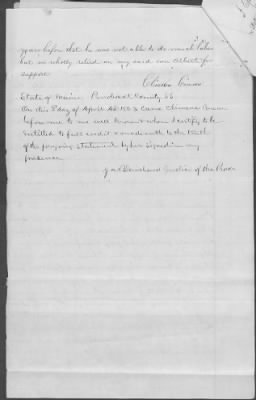 years before that he was not able to do much labor
but on wholly relied on my said son Albert for
support
State of Maine Penobscot County SS
On this 2 day of April AD 1883 Came
before me to me well known whom I certify to be
entitled to full credit & made oath to the truth
of the forgoing statement by her signed in my
presence
Justice of the Peace